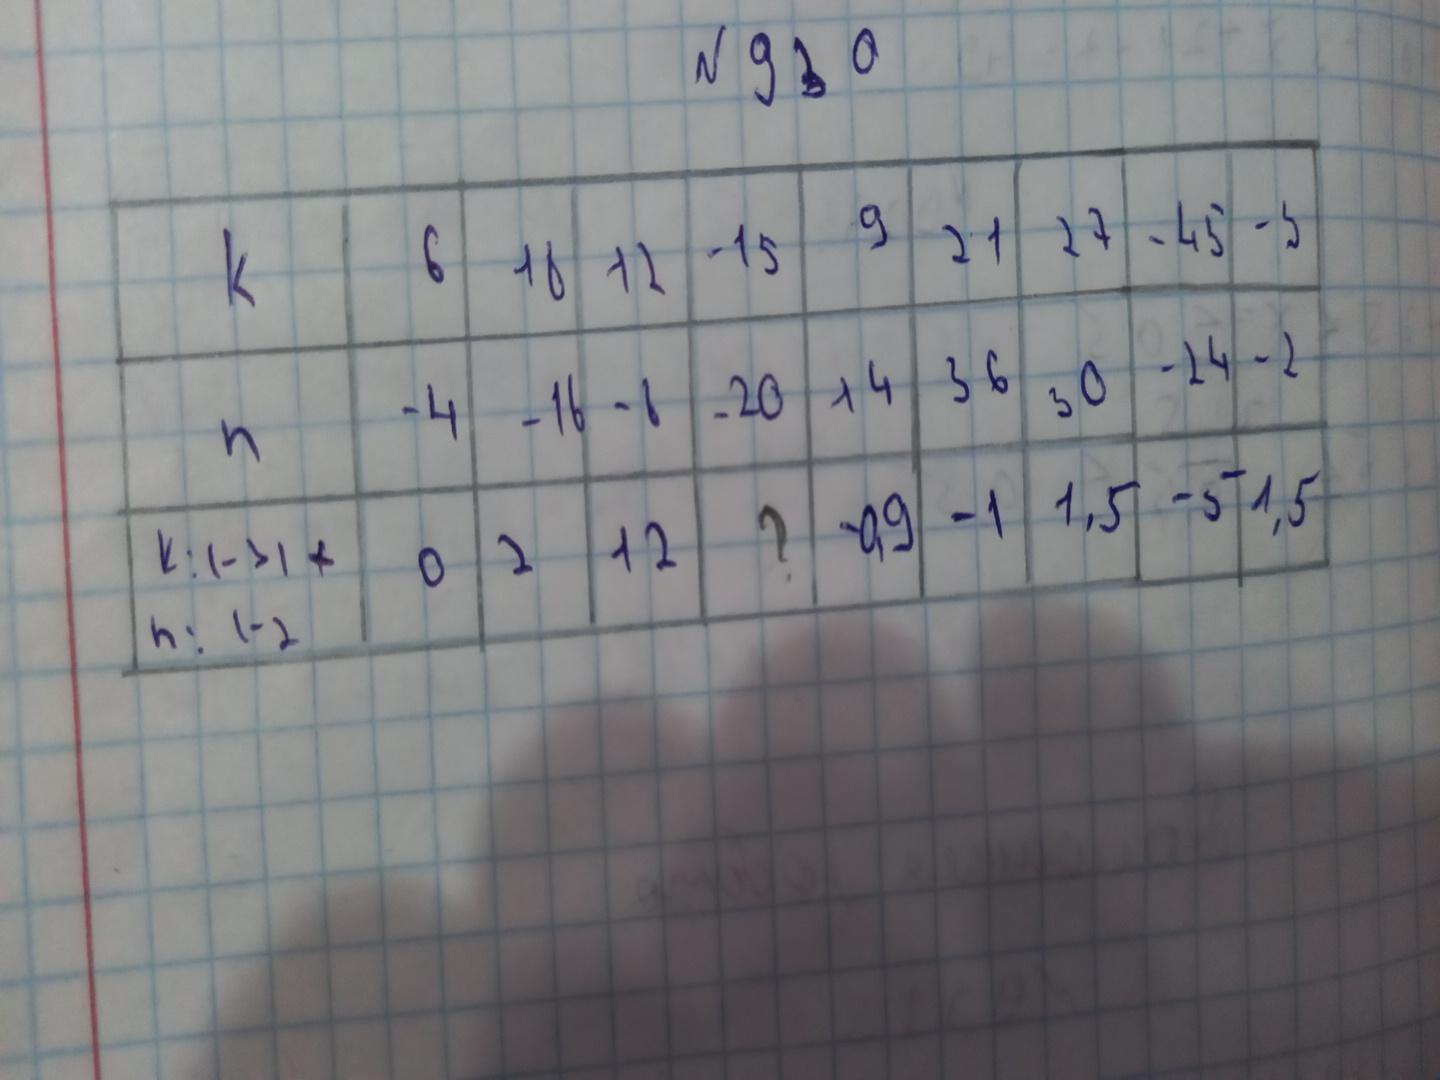 N 930
k 6 18 12 -15 9 21 27 -45 -3
n -4 -16 -8 -20 14 36 30 -24 -2
k:(-3)+ 0 2 12 ? -0,9 -1 1,5 -5 1,5
n: (-2